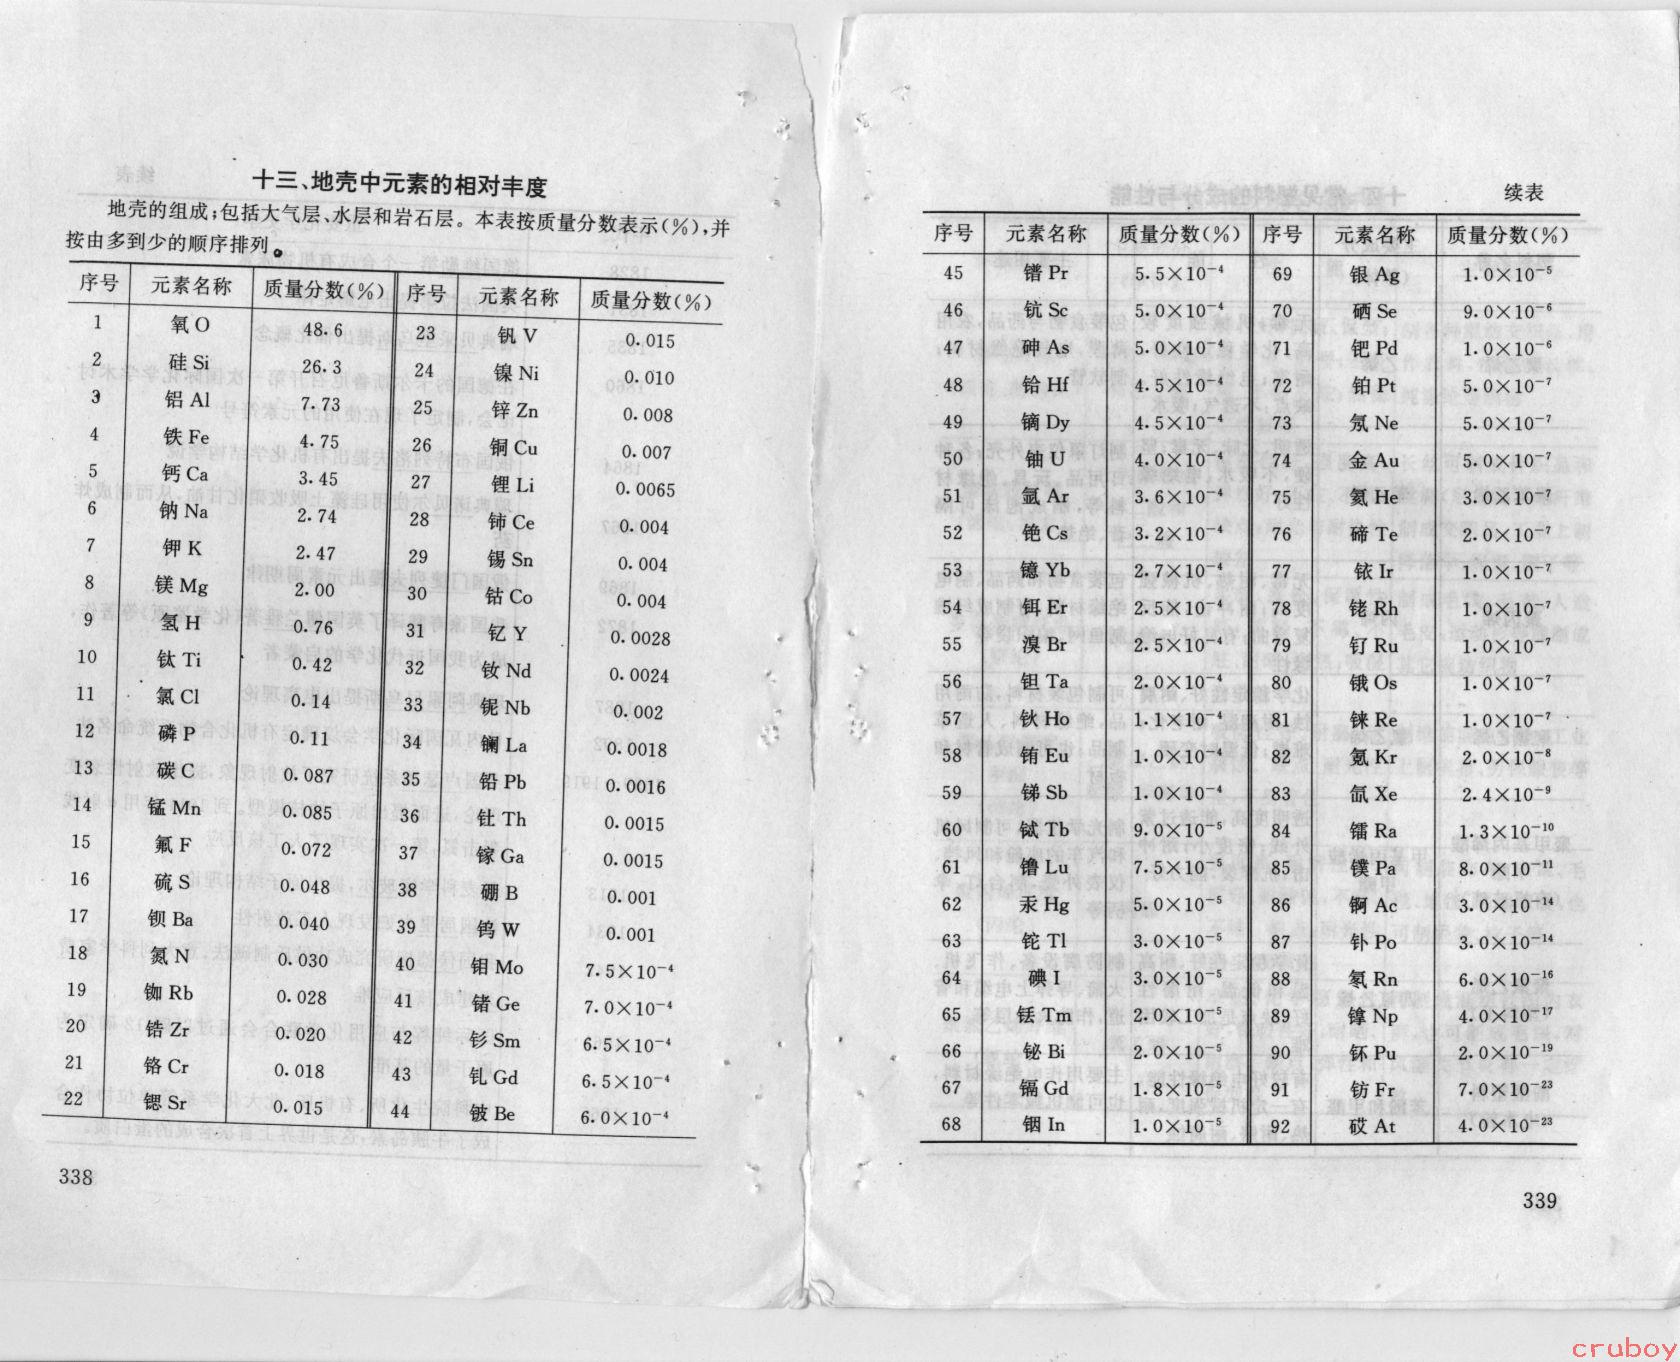 十三、地壳中元素的相对丰度
地壳的组成;包括大气层、水层和岩石层。本表按质量分数表示(%),并
按由多到少的顺序排列。
序号 元素名称 质量分数(%) 序号 元素名称 质量分数(%)
1 氧 O 48.6 23 钒 V 0.015
2 硅 Si 26.3 24 镍 Ni 0.010
3 铝 Al 7.73 25 锌 Zn 0.008
4 铁 Fe 4.75 26 铜 Cu 0.007
5 钙 Ca 3.45 27 锂 Li 0.0065
6 钠 Na 2.74 28 铈 Ce 0.004
7 钾 K 2.47 29 锡 Sn 0.004
8 镁 Mg 2.00 30 钴 Co 0.004
9 氢 H 0.76 31 钇 Y 0.0028
10 钛 Ti 0.42 32 钕 Nd 0.0024
11 氯 Cl 0.14 33 铌 Nb 0.002
12 磷 P 0.11 34 镧 La 0.0018
13 碳 C 0.087 35 铅 Pb 0.0016
14 锰 Mn 0.085 36 钍 Th 0.0015
15 氟 F 0.072 37 镓 Ga 0.0015
16 硫 S 0.048 38 硼 B 0.001
17 钡 Ba 0.040 39 钨 W 0.001
18 氮 N 0.030 40 钼 Mo 7.5×10⁻⁴
19 铷 Rb 0.028 41 锗 Ge 7.0×10⁻⁴
20 锆 Zr 0.020 42 钐 Sm 6.5×10⁻⁴
21 铬 Cr 0.018 43 钆 Gd 6.5×10⁻⁴
22 锶 Sr 0.015 44 铍 Be 6.0×10⁻⁴
338
续表
序号 元素名称 质量分数(%) 序号 元素名称 质量分数(%)
45 镨 Pr 5.5×10⁻⁴ 69 银 Ag 1.0×10⁻⁵
46 钪 Sc 5.0×10⁻⁴ 70 硒 Se 9.0×10⁻⁶
47 砷 As 5.0×10⁻⁴ 71 钯 Pd 1.0×10⁻⁶
48 铪 Hf 4.5×10⁻⁴ 72 铂 Pt 5.0×10⁻⁷
49 镝 Dy 4.5×10⁻⁴ 73 氖 Ne 5.0×10⁻⁷
50 铀 U 4.0×10⁻⁴ 74 金 Au 5.0×10⁻⁷
51 氩 Ar 3.6×10⁻⁴ 75 氦 He 3.0×10⁻⁷
52 铯 Cs 3.2×10⁻⁴ 76 碲 Te 2.0×10⁻⁷
53 镱 Yb 2.7×10⁻⁴ 77 铱 Ir 1.0×10⁻⁷
54 铒 Er 2.5×10⁻⁴ 78 铑 Rh 1.0×10⁻⁷
55 溴 Br 2.5×10⁻⁴ 79 钌 Ru 1.0×10⁻⁷
56 钽 Ta 2.0×10⁻⁴ 80 锇 Os 1.0×10⁻⁷
57 钬 Ho 1.1×10⁻⁴ 81 铼 Re 1.0×10⁻⁷
58 铕 Eu 1.0×10⁻⁴ 82 氪 Kr 2.0×10⁻⁸
59 锑 Sb 1.0×10⁻⁴ 83 氙 Xe 2.4×10⁻⁹
60 铽 Tb 9.0×10⁻⁵ 84 镭 Ra 1.3×10⁻¹⁰
61 镥 Lu 7.5×10⁻⁵ 85 镤 Pa 8.0×10⁻¹¹
62 汞 Hg 5.0×10⁻⁵ 86 锕 Ac 3.0×10⁻¹⁴
63 铊 Tl 3.0×10⁻⁵ 87 钋 Po 3.0×10⁻¹⁴
64 碘 I 3.0×10⁻⁵ 88 氡 Rn 6.0×10⁻¹⁶
65 铥 Tm 2.0×10⁻⁵ 89 镎 Np 4.0×10⁻¹⁷
66 铋 Bi 2.0×10⁻⁵ 90 钚 Pu 2.0×10⁻¹⁹
67 镉 Gd 1.8×10⁻⁵ 91 钫 Fr 7.0×10⁻²³
68 铟 In 1.0×10⁻⁵ 92 砹 At 4.0×10⁻²³
339
cruboy